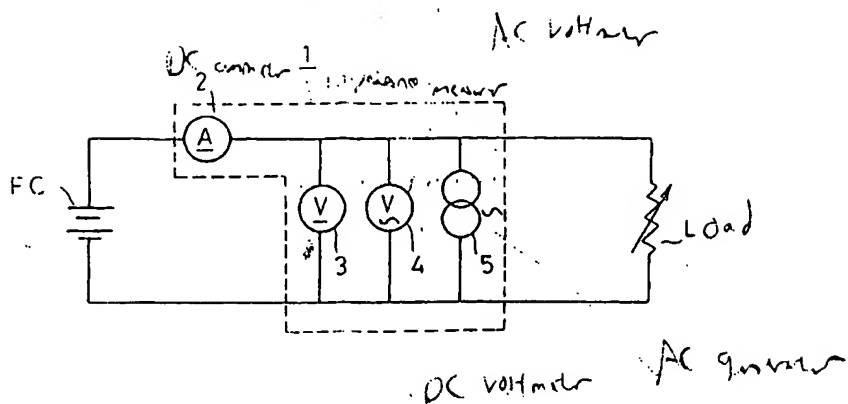 AC voltmeter
DC ammeter 1
2 impedance measur
A
FC
V V
3 4 5
Load
DC voltmeter AC generator